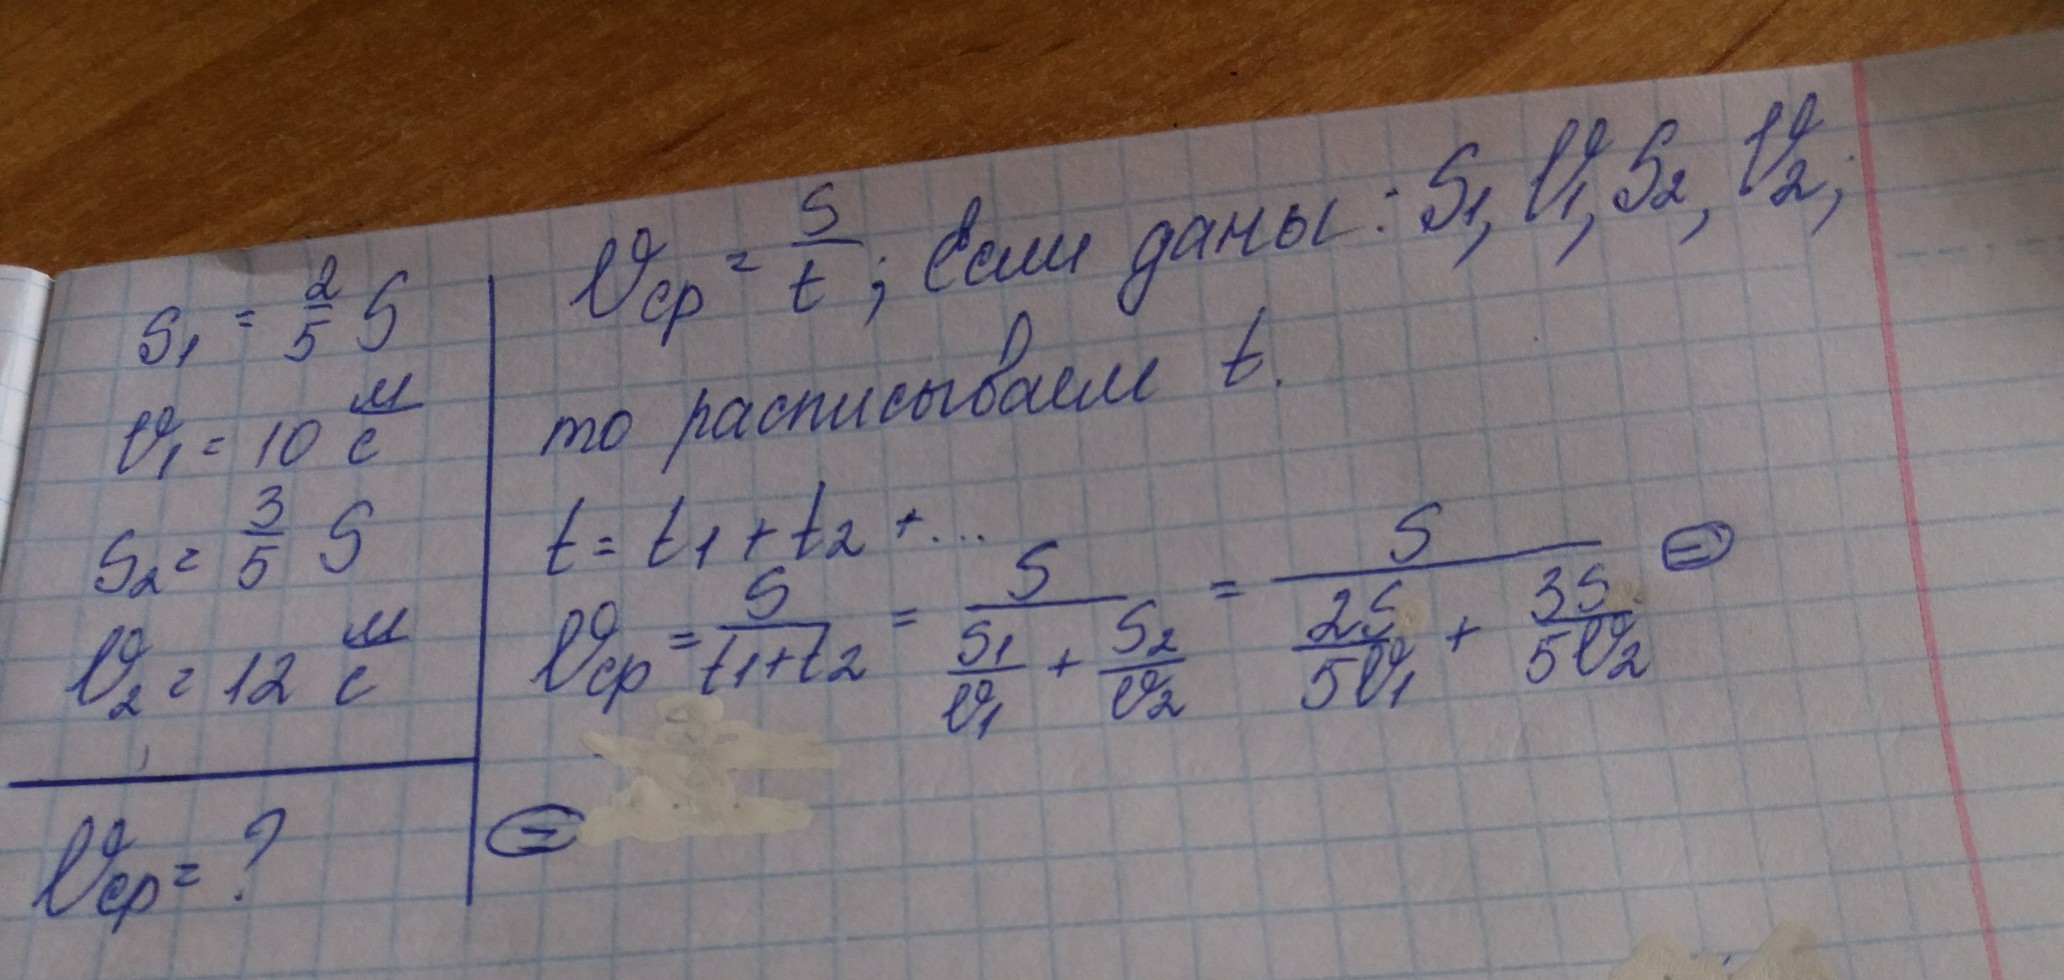 S₁ = 2/5 S
v₁ = 10 м/с
S₂ = 3/5 S
v₂ = 12 м/с
vср = ?
vср = S/t ; Если даны: S₁, v₁, S₂, v₂;
то расписываем t.
t = t₁ + t₂ + ...
vср = S/(t₁+t₂) = S/(S₁/v₁ + S₂/v₂) = S/(2S/5v₁ + 3S/5v₂) ⊜
⊜